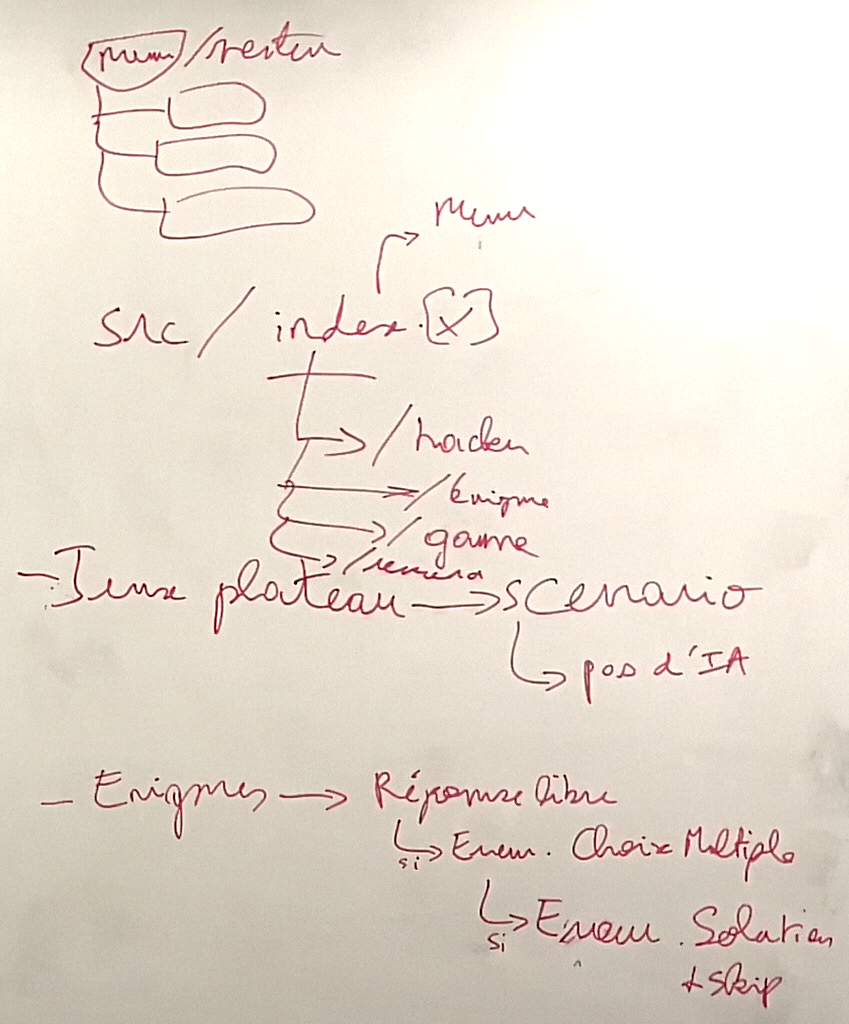 menu /
Menu
src / index.[x]
/
/ Enigme
/ game
/
- Jeux plateau → scenario
↳ pas d'IA
- Enigmes → Réponse libre
si ↳ Erreur. Choix Multiple
si ↳ Erreur. Solution
+ skip